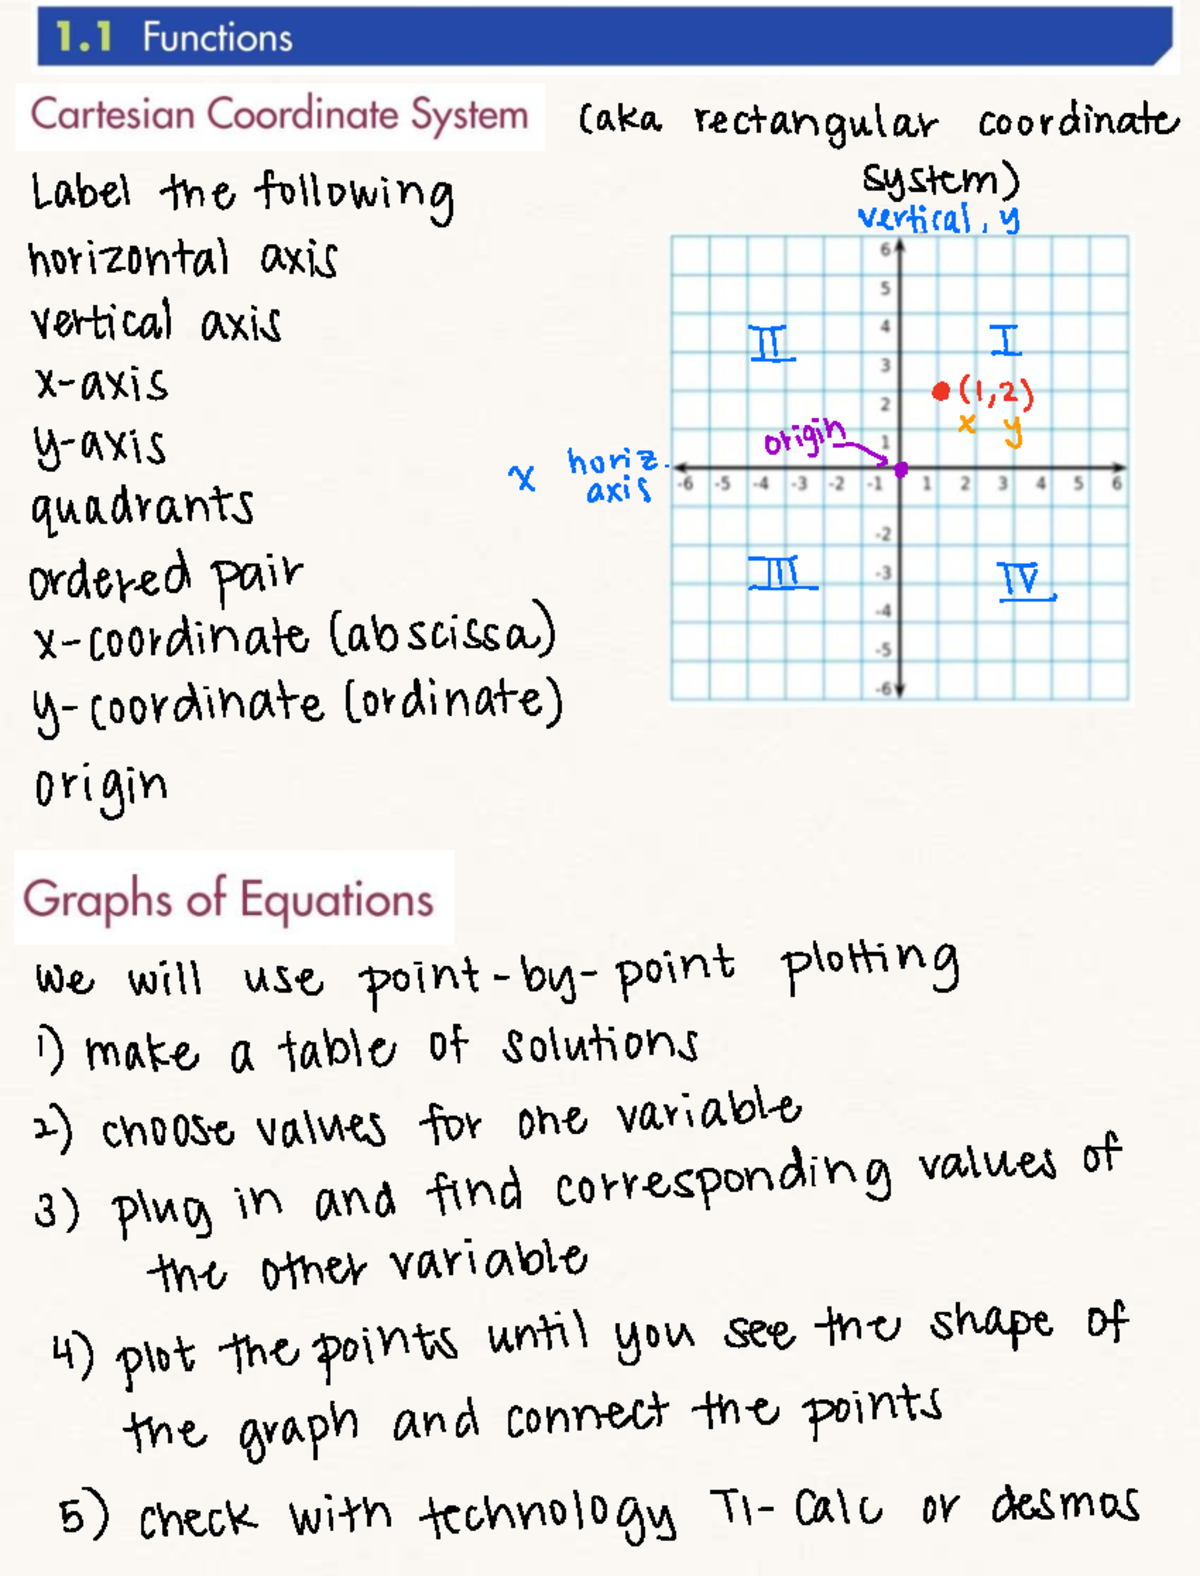 1.1 Functions
Cartesian Coordinate System (aka rectangular coordinate
system)
Label the following
vertical, y
horizontal axis
vertical axis
x-axis
y-axis
quadrants
ordered pair
x-coordinate (abscissa)
y-coordinate (ordinate)
origin
6
5
4
3
2
1
II
I
(1,2)
x y
origin
x horiz.
axis
-6 -5 -4 -3 -2 -1 1 2 3 4 5 6
-2
-3
-4
-5
-6
III
IV
Graphs of Equations
we will use point-by-point plotting
1) make a table of solutions
2) choose values for one variable
3) plug in and find corresponding values of
the other variable
4) plot the points until you see the shape of
the graph and connect the points
5) check with technology TI-Calc or desmos